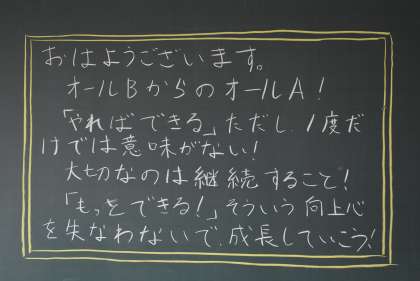 おはようございます。
オールBからのオールA!
「やればできる」ただし、1度だ
けでは意味がない!
大切なのは継続すること!
「もっとできる!」そういう向上心
を失なわないで、成長していこう!